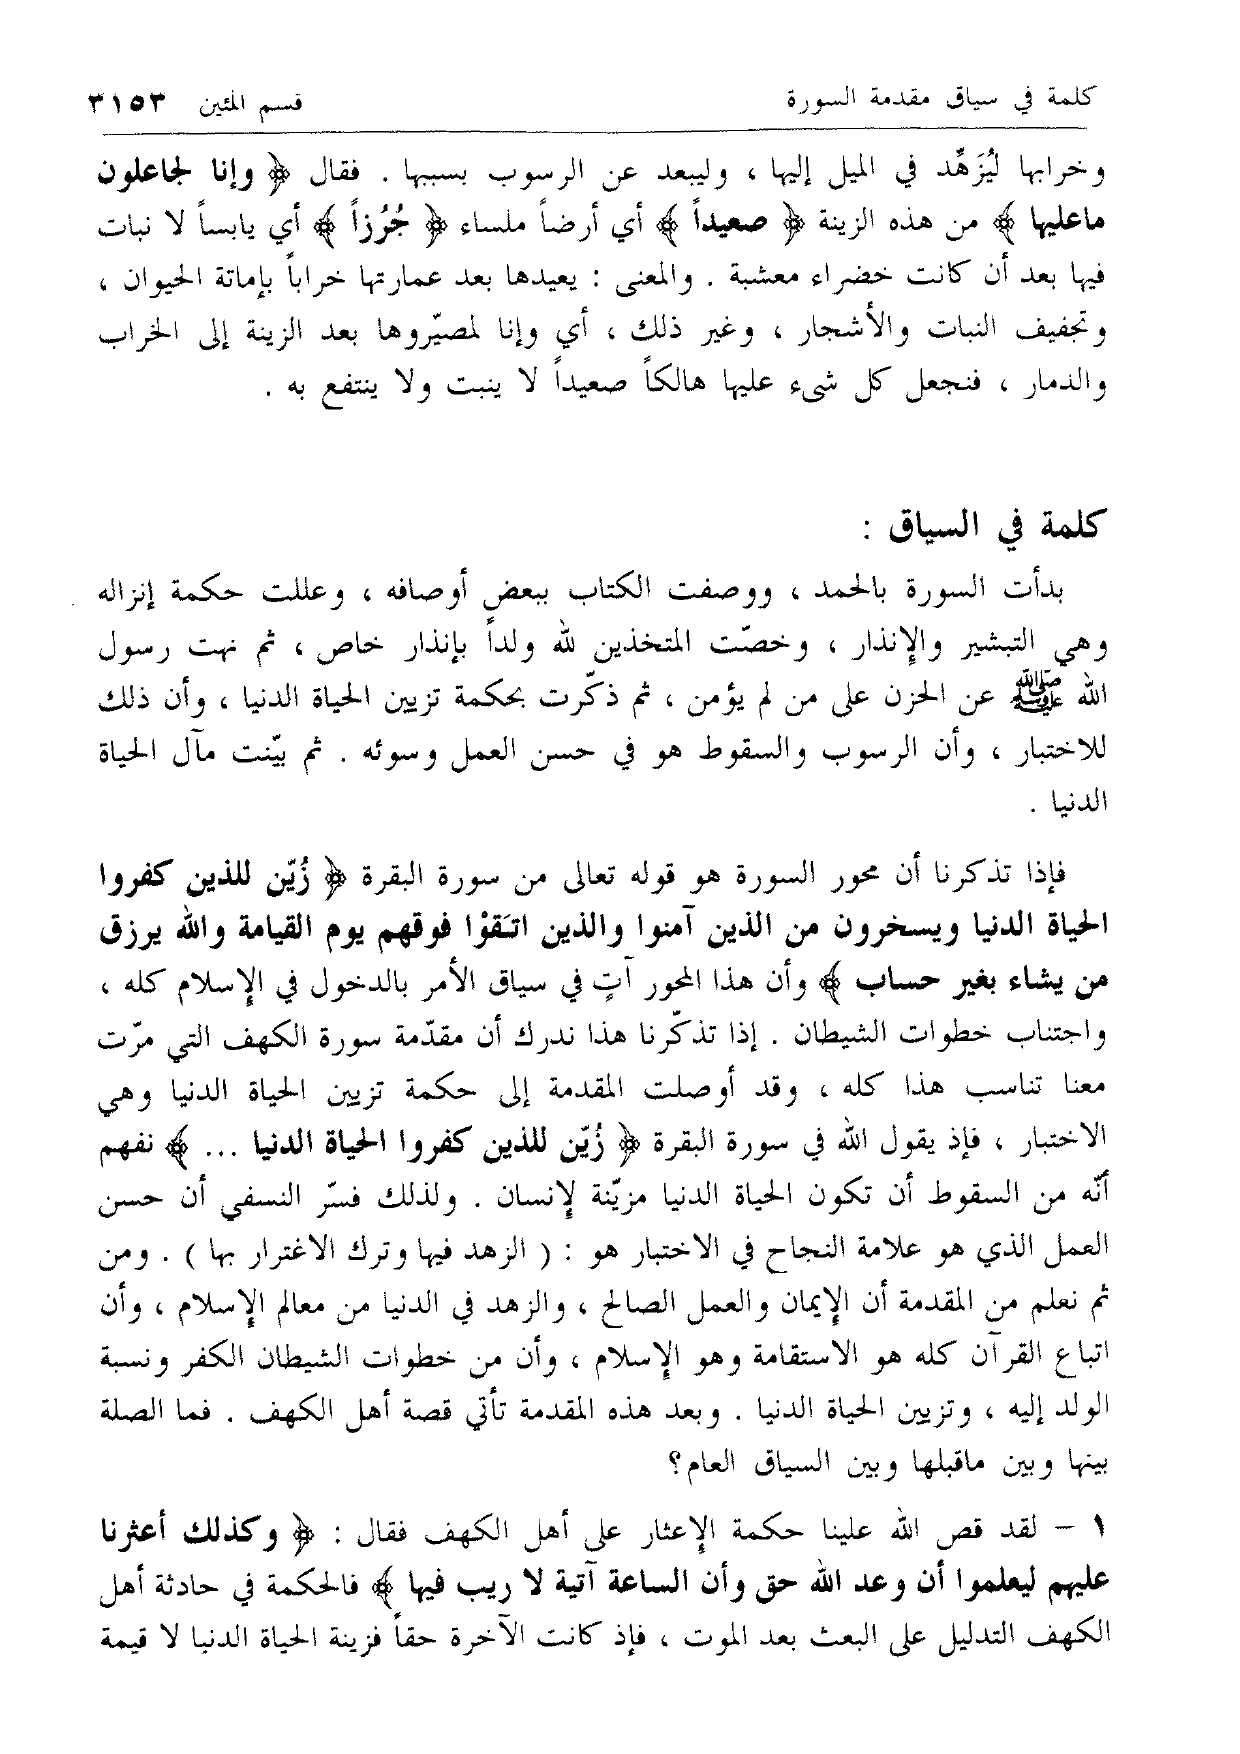 كلمة في سياق مقدمة السورة
قسم المئين ٣١٥٣
وخرابها ليُزَهِّد في الميل إليها ، وليبعد عن الرسوب بسببها . فقال ﴿ وإنا لجاعلون
ماعليها ﴾ من هذه الزينة ﴿ صعيداً ﴾ أي أرضاً ملساء ﴿ جُرُزاً ﴾ أي يابساً لا نبات
فيها بعد أن كانت خضراء معشبة . والمعنى : يعيدها بعد عمارتها خراباً بإماتة الحيوان ،
وتجفيف النبات والأشجار ، وغير ذلك ، أي وإنا لمصيّروها بعد الزينة إلى الخراب
والدمار ، فنجعل كل شىء عليها هالكاً صعيداً لا ينبت ولا ينتفع به .
كلمة في السياق :
بدأت السورة بالحمد ، ووصفت الكتاب ببعض أوصافه ، وعللت حكمة إنزاله
وهي التبشير والإنذار ، وخصّت المتخذين لله ولداً بإنذار خاص ، ثم نهت رسول
الله ﷺ عن الحزن على من لم يؤمن ، ثم ذكّرت بحكمة تزيين الحياة الدنيا ، وأن ذلك
للاختبار ، وأن الرسوب والسقوط هو في حسن العمل وسوئه . ثم بيّنت مآل الحياة
الدنيا .
فإذا تذكرنا أن محور السورة هو قوله تعالى من سورة البقرة ﴿ زُيّن للذين كفروا
الحياة الدنيا ويسخرون من الذين آمنوا والذين اتقَوْا فوقهم يوم القيامة والله يرزق
من يشاء بغير حساب ﴾ وأن هذا المحور آتٍ في سياق الأمر بالدخول في الإسلام كله ،
واجتناب خطوات الشيطان . إذا تذكّرنا هذا ندرك أن مقدّمة سورة الكهف التي مرّت
معنا تناسب هذا كله ، وقد أوصلت المقدمة إلى حكمة تزيين الحياة الدنيا وهي
الاختبار ، فإذ يقول الله في سورة البقرة ﴿ زُيّن للذين كفروا الحياة الدنيا ... ﴾ نفهم
أنّه من السقوط أن تكون الحياة الدنيا مزيّنة لإنسان . ولذلك فسّر النسفي أن حسن
العمل الذي هو علامة النجاح في الاختبار هو : ( الزهد فيها وترك الاغترار بها ) . ومن
ثم نعلم من المقدمة أن الإيمان والعمل الصالح ، والزهد في الدنيا من معالم الإسلام ، وأن
اتباع القرآن كله هو الاستقامة وهو الإسلام ، وأن من خطوات الشيطان الكفر ونسبة
الولد إليه ، وتزيين الحياة الدنيا . وبعد هذه المقدمة تأتي قصة أهل الكهف . فما الصلة
بينها وبين ماقبلها وبين السياق العام؟
١ – لقد قص الله علينا حكمة الإعثار على أهل الكهف فقال : ﴿ وكذلك أعثرنا
عليهم ليعلموا أن وعد الله حق وأن الساعة آتية لا ريب فيها ﴾ فالحكمة في حادثة أهل
الكهف التدليل على البعث بعد الموت ، فإذ كانت الآخرة حقاً فزينة الحياة الدنيا لا قيمة